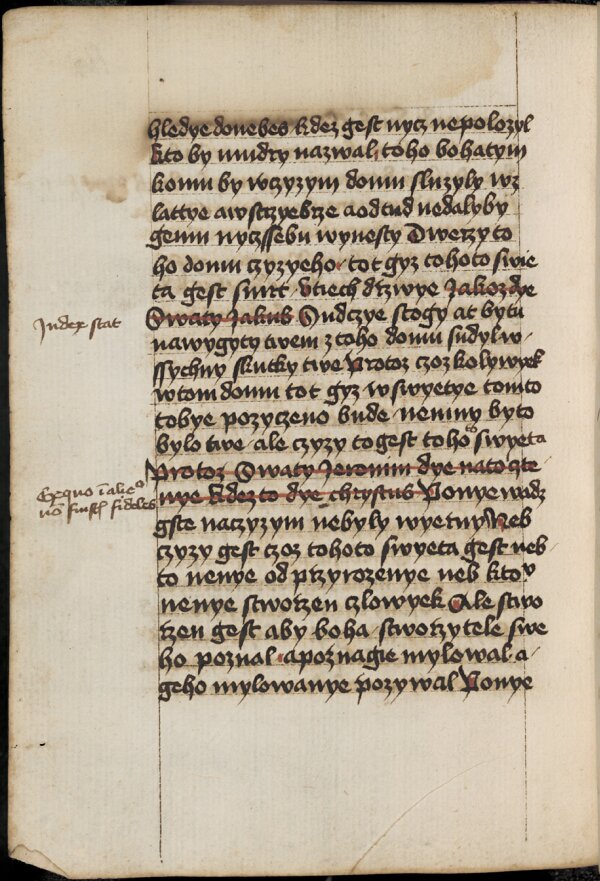 hledye donebes kdez gest nycz nepolozyl
kto by mudry nazwal toho bohatym
komu by wczyzym domu sluzyly wz
lattye awstrzyebrze aodtud nedalyby
gemu nyczssebu wynesty Dwerzy to
ho domu czyzyeho tot gyz tohoto swie
ta gest smrt Vtiech drzwye Jakozdye
Swaty Jakub Sudczye stogy at bytu
nawygyty twem ztoho domu sudyl w
ssychny skutky twe Protoz czoz kolywyek
wtom domu tot gyz wswyetye tomto
tobye pozyczeno bude nenmy byto
bylo twe ale czyzy togest tohoto swyeta
Protoz Swaty Jeronim dye nato czte
nye kdezto dye chrystus Ponyewadz
gste naczyzym nebyly wyerny Neb
czyzy gest czoz tohoto swyeta gest neb
to nenye od przyrozenye neb kto v
nenye stworzen czlowyek Ale stwo
rzen gest aby boha stworzytele swe
ho poznal apoznagie mylowal a
geho mylowanye pozywal Ponye
Judex stat
Exquo i alieo
fideles